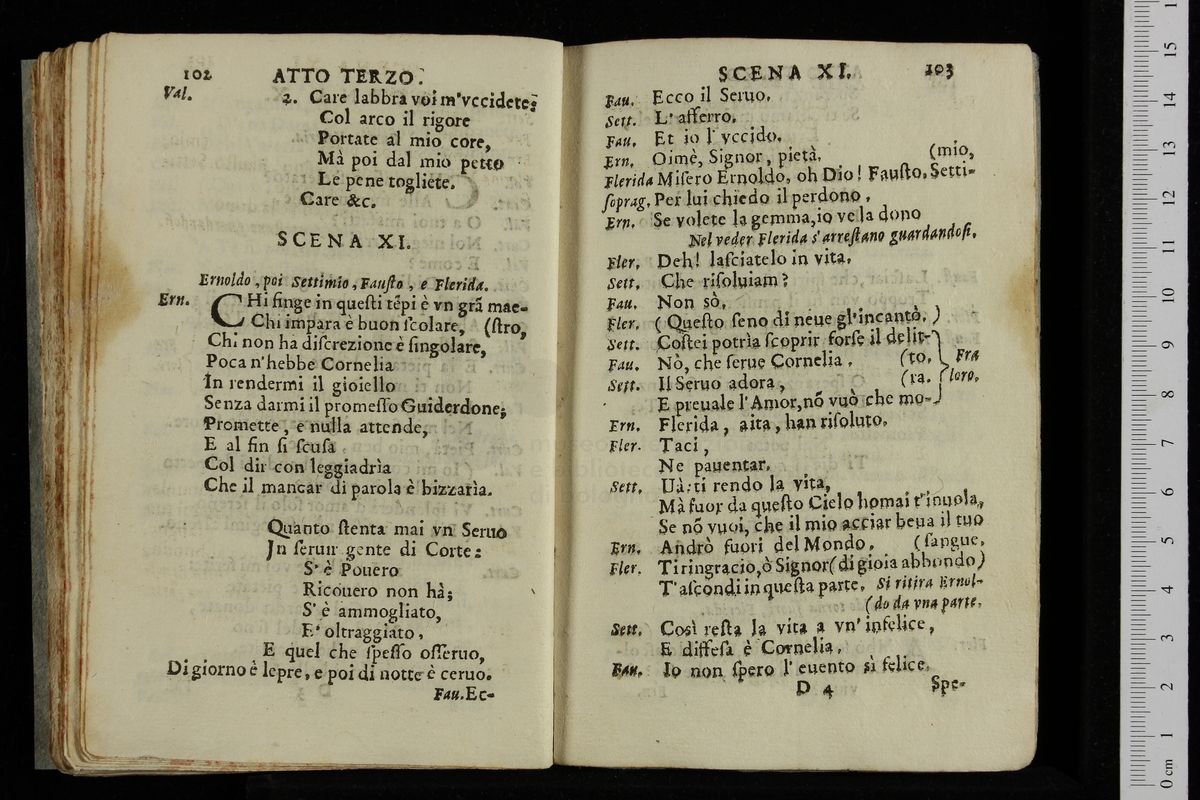 102 ATTO TERZO.
Val. 2. Care labbra voi m'vccidete;
Col arco il rigore
Portate al mio core,
Mà poi dal mio petto
Le pene togliete.
Care &c.
SCENA XI.
Ernoldo, poi Settimio, Fausto, e Flerida.
Ern. CHi finge in questi tẽpi è vn grã mae-
Chi impara è buon scolare, (stro,
Chi non ha discrezione è singolare,
Poca n'hebbe Cornelia
In rendermi il gioiello
Senza darmi il promesso Guiderdone;
Promette, e nulla attende,
E al fin si scusa
Col dir con leggiadrìa
Che il mancar di parola è bizzarìa.
Quanto stenta mai vn Seruo
Jn seruir gente di Corte:
S'è Pouero
Ricouero non hà;
S'è ammogliato,
E' oltraggiato,
E quel che spesso osseruo,
Di giorno è lepre, e poi di notte è ceruo.
Fau. Ec-
SCENA XI. 103
Fau. Ecco il Seruo.
Sett. L'afferro.
Fau. Et io l'vccido.
Ern. Oimè, Signor, pietà. (mio,
Flerida Misero Ernoldo, oh Dio! Fausto, Setti-
soprag. Per lui chiedo il perdono.
Ern. Se volete la gemma, io ve la dono
Nel veder Flerida s'arrestano guardandosi.
Fler. Deh! lasciatelo in vita.
Sett. Che risoluiam?
Fau. Non sò.
Fler. (Questo seno di neue gl'incantò.)
Sett. Costei potrìa scoprir forse il delit-
Fau. Nò, che serue Cornelia. (to. Fra
Sett. Il Seruo adora, (ra. loro.
E preuale l'Amor, nõ vuò che mo-
Ern. Flerida, aita, han risoluto.
Fler. Taci,
Ne pauentar.
Sett. Uà: ti rendo la vita,
Mà fuor da questo Cielo homai t'inuola,
Se nõ vuoi, che il mio acciar beua il tuo
Ern. Andrò fuori del Mondo. (sangue.
Fler. Ti ringracio, ò Signor (di gioia abbondo)
T'ascondi in questa parte. Si ritira Ernol-
(do da vna parte.
Sett. Così resta la vita a vn'infelice,
E diffesa è Cornelia.
Fau. Io non spero l'euento sì felice.
D 4 Spe-
0 cm 1 2 3 4 5 6 7 8 9 10 11 12 13 14 15